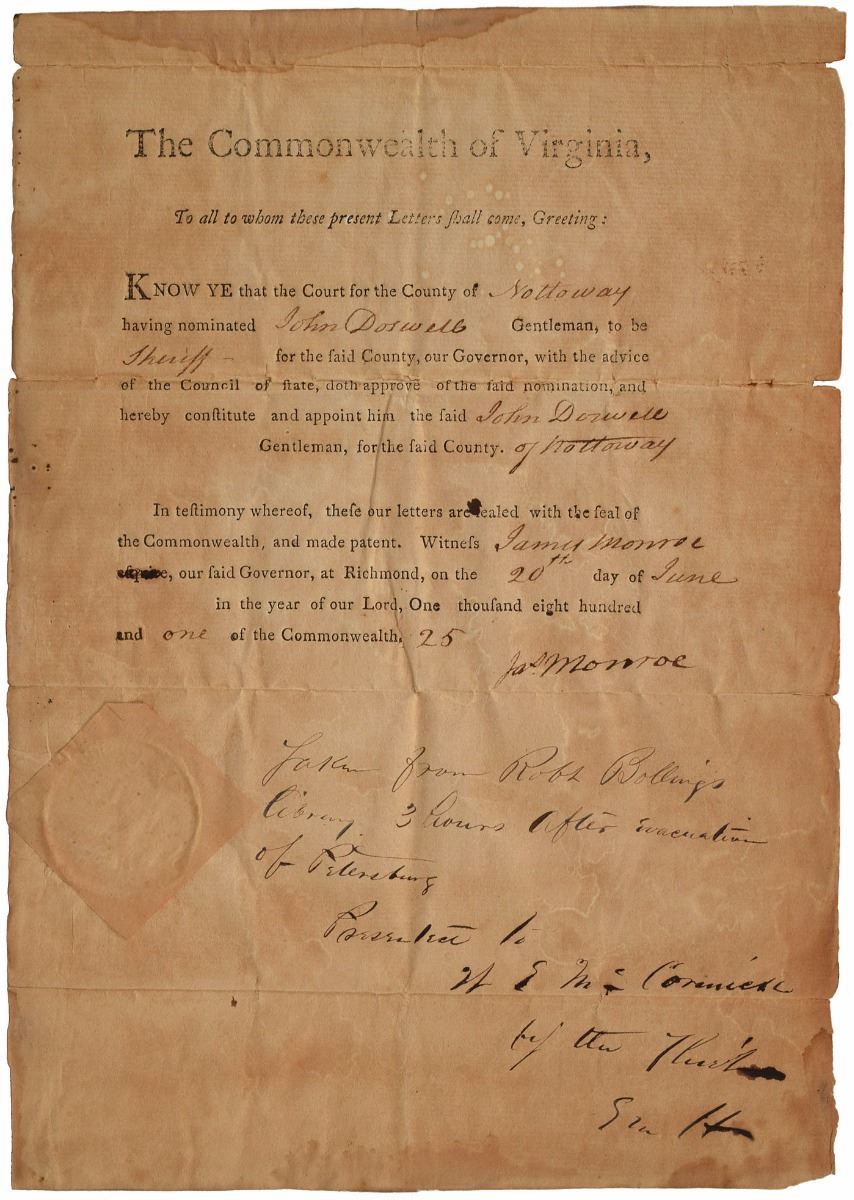 The Commonwealth of Virginia,
To all to whom these present Letters ſhall come, Greeting:
KNOW YE that the Court for the County of Nottoway
having nominated John Doswell Gentleman, to be
Sheriff - for the ſaid County, our Governor, with the advice
of the Council of ſtate, doth approve of the ſaid nomination, and
hereby conſtitute and appoint him the ſaid John Doswell
Gentleman, for the ſaid County. of Nottoway
In teſtimony whereof, theſe our letters are ſealed with the ſeal of
the Commonwealth, and made patent. Witneſs James Monroe
eſquire, our ſaid Governor, at Richmond, on the 20th day of June
in the year of our Lord, One thouſand eight hundred
and one of the Commonwealth, 25
Jas. Monroe
Taken from Robt Bollings
library 3 hours after evacuation
of Petersburg
Presented to
W E Mc Cormick
by the